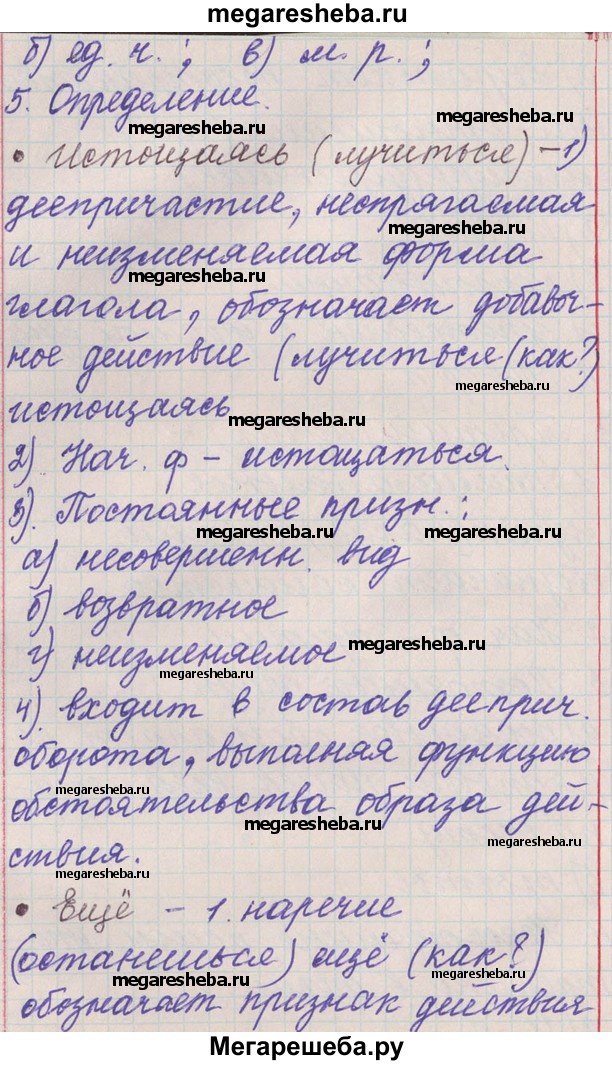 megaresheba.ru
б) ед. ч. ; в) м. р. ;
5. Определение.
megaresheba.ru
• Истощаясь (лучиться) – 1)
megaresheba.ru
деепричастие, неспрягаемая
megaresheba.ru
и неизменяемая форма
megaresheba.ru
глагола, обозначает добавоч-
ное действие (лучиться (как?)
megaresheba.ru
истощаясь
megaresheba.ru
2). Нач. ф – истощаться.
3). Постоянные призн. :
megaresheba.ru megaresheba.ru
а) несовершенн. вид
б) возвратное
megaresheba.ru
г) неизменяемое
megaresheba.ru
4). входит в состав дееприч.
оборота, выполняя функцию
megaresheba.ru
обстоятельства образа дей-
megaresheba.ru
ствия.
megaresheba.ru
• Ещё – 1. наречие
(останешься) ещё (как?)
megaresheba.ru megaresheba.ru
обозначает признак действия
Мегарешеба.ру